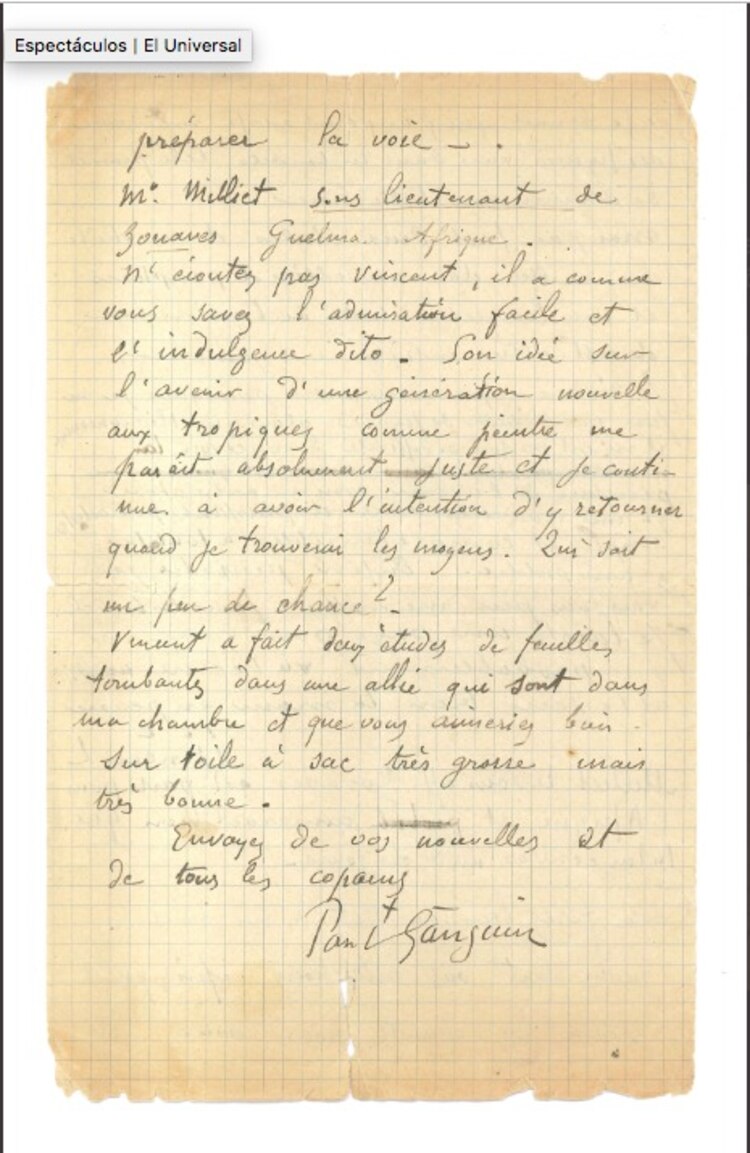 Espectáculos | El Universal
préparer la voie — .
Mr. Milliet sous lieutenant de
Zouaves Guelma Afrique .
N'écoutez pas Vincent, il a comme
vous savez l'admiration facile et
l'indulgence dito. Son idée sur
l'avenir d'une génération nouvelle
aux tropiques comme peintre me
parait absolument juste et je conti-
nue à avoir l'intention d'y retourner
quand je trouverai les moyens. Qui sait
un peu de chance ? -
Vincent a fait deux études de feuilles
tombantes dans une allée qui sont dans
ma chambre et que vous aimeriez bien
sur toile à sac très grosse mais
très bonne .
Envoyez de vos nouvelles et
de tous les copains
Paul Gauguin